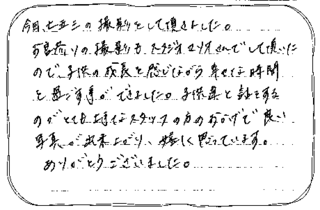 今日、七五三の撮影をして頂きました。
お宮参りの撮影も、スタジオマリオさんでして頂いた
ので、子供の成長を感じながら幸せな時間
を過ごす事ができました。子供達と話をする
のがとても上手なスタッフの方のおかげで良い
写真が出来上がり、嬉しく思っています。
ありがとうございました。